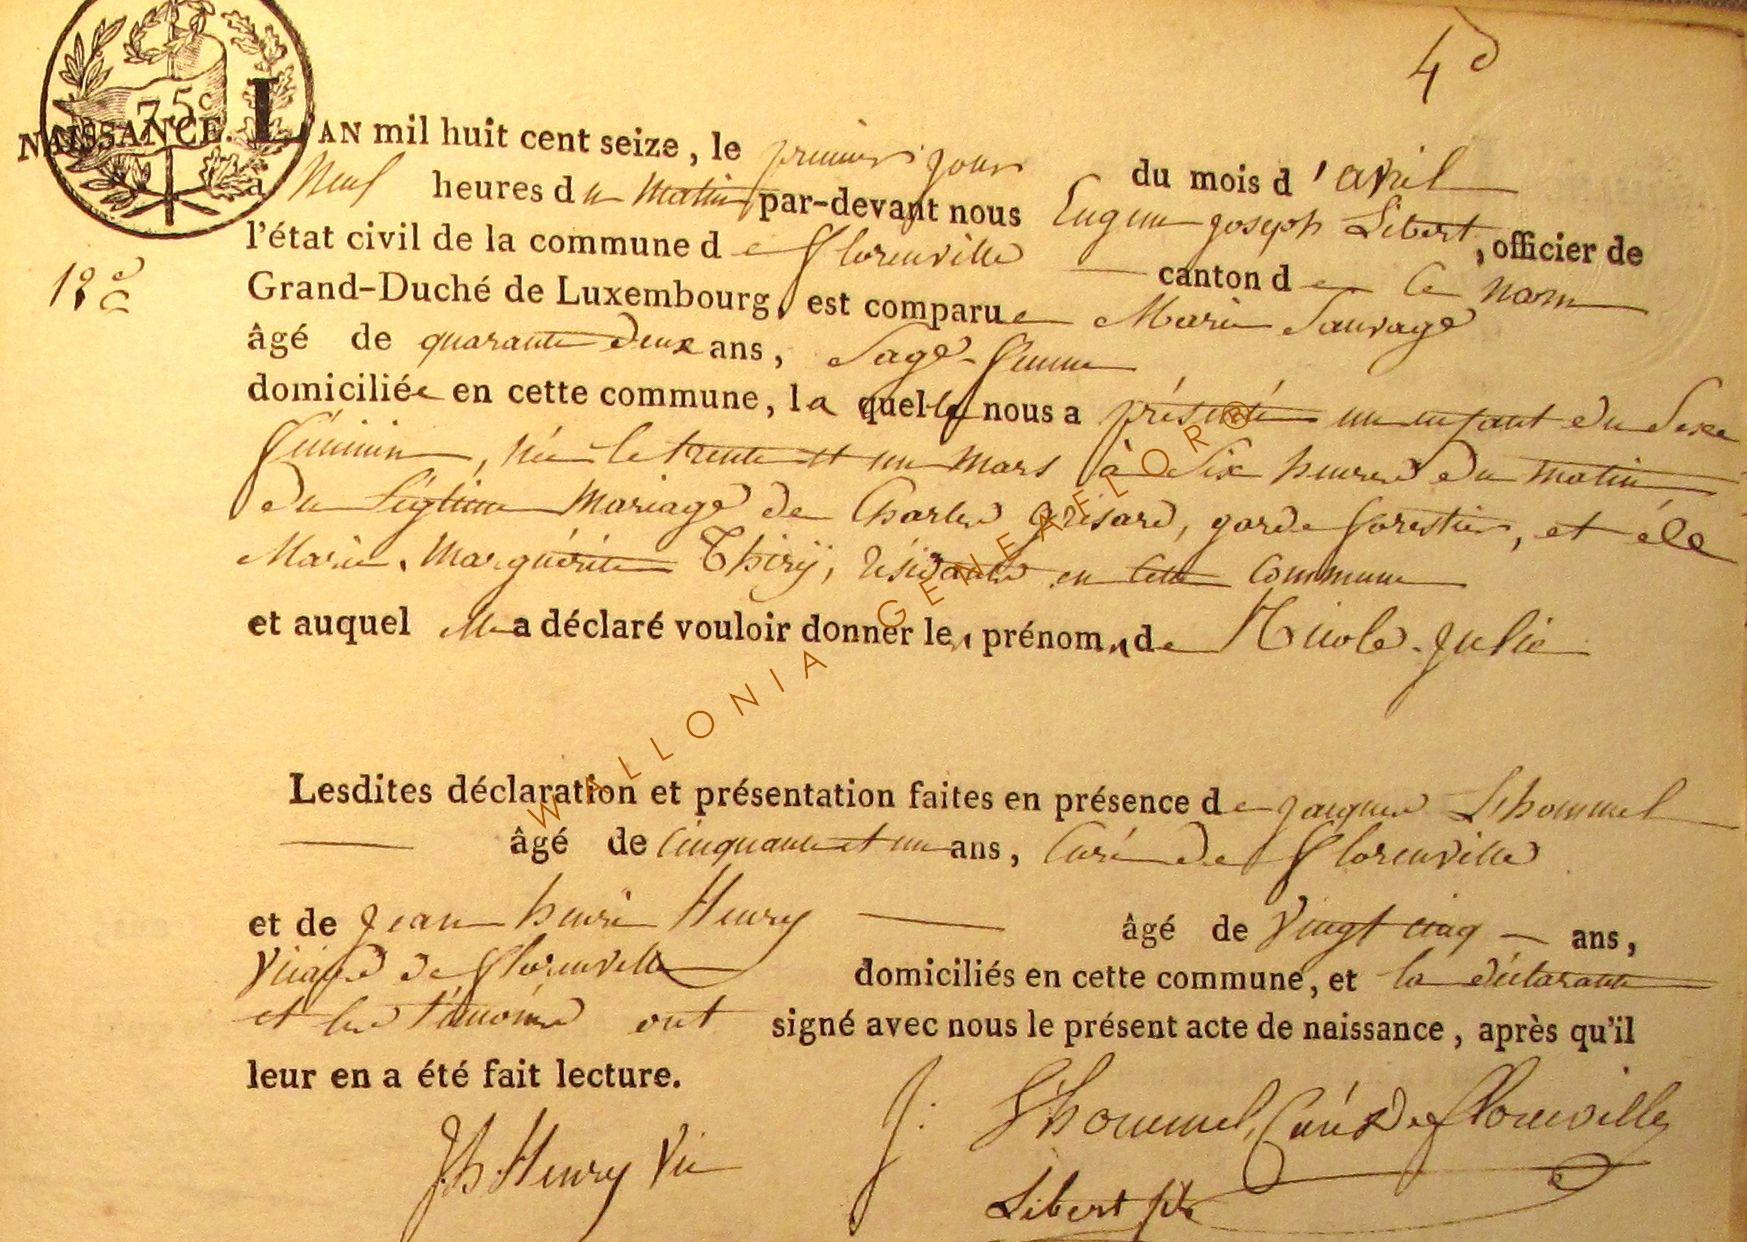 4e
75c
NAISSANCE. L'AN mil huit cent seize, le premier jour du mois d'avril
à Neuf heures du Matin par-devant nous Eugene joseph Libert, officier de
l'état civil de la commune de florenville canton de Ce nom
18e
Grand-Duché de Luxembourg, est comparue Marie Sauvage
âgé de quarante deux ans, Sage-femme
domiciliée en cette commune, laquelle nous a présenté un enfant du Sexe
féminin, née le trente et un Mars à Six heures du matin
du Légitime Mariage de Charles Grisard, garde forestier, et de
Marie-Marguérite Thiry, résidants en cette Commune
et auquel elle a déclaré vouloir donner les prénoms de Nicole-julie
Lesdites déclaration et présentation faites en présence de jacques Lhommel
âgé de Cinquante et un ans, Curé de florenville
et de jean henri Henry âgé de Vingt cinq ans,
Vicaire de florenville domiciliés en cette commune, et la déclarante
et les témoins ont signé avec nous le présent acte de naissance, après qu'il
leur en a été fait lecture.
J: Lhommel, Curé de florenville
Jh Henry Vic
Libert
WALLONIA GENEAFLOR®